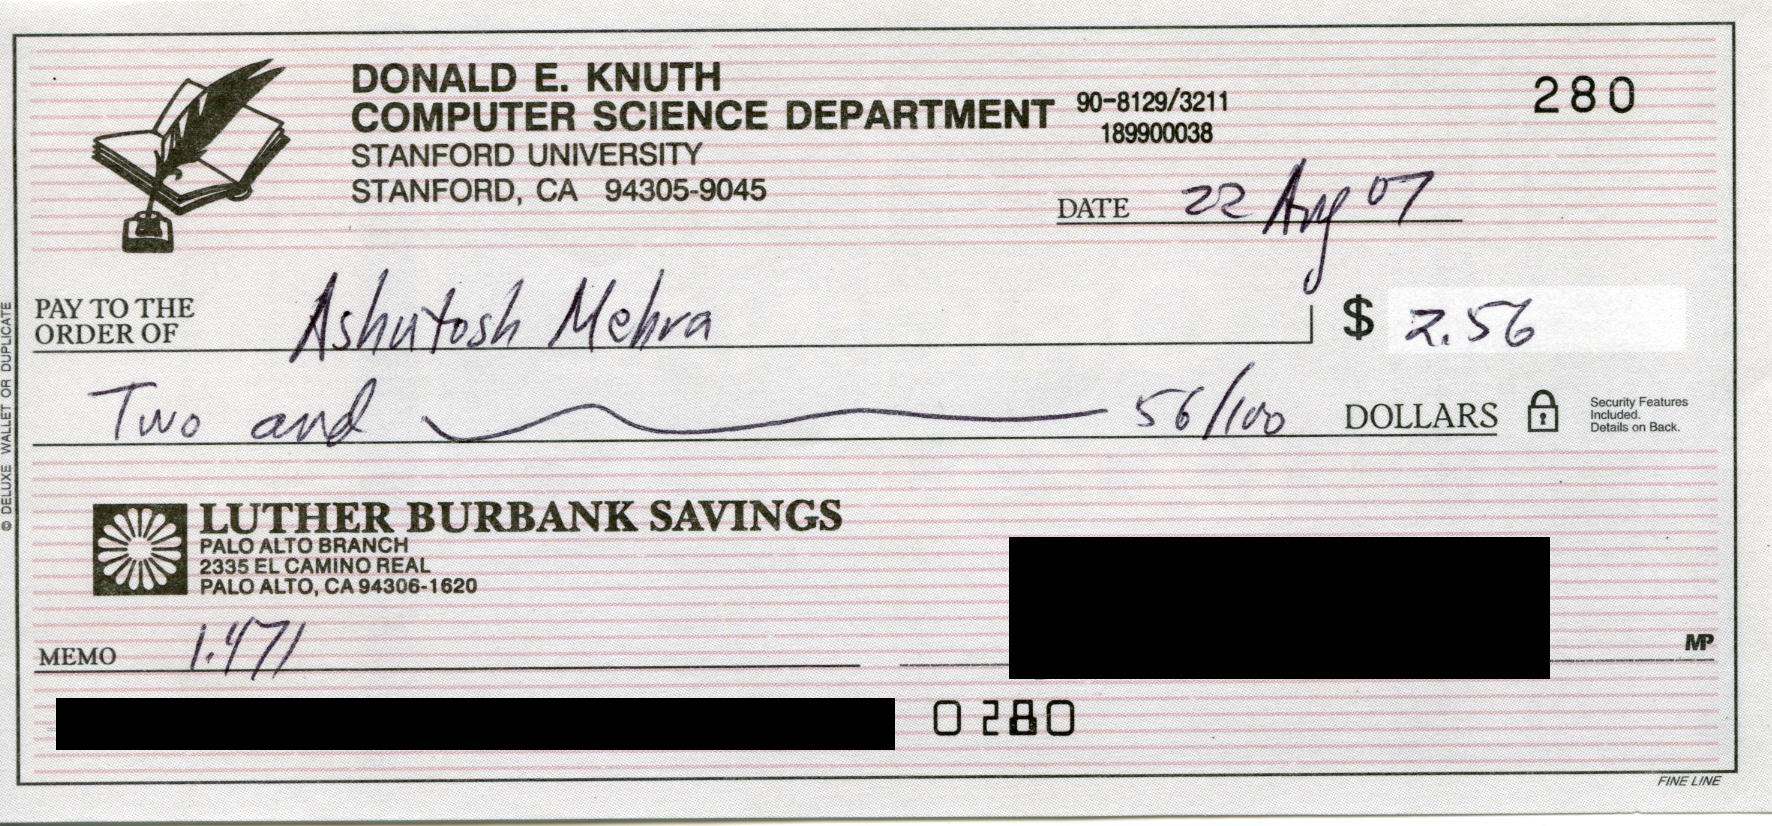 DONALD E. KNUTH
COMPUTER SCIENCE DEPARTMENT
STANFORD UNIVERSITY
STANFORD, CA 94305-9045
90-8129/3211
189900038
280
DATE 22 Aug 07
PAY TO THE
ORDER OF Ashutosh Mehra $ 2.56
Two and 56/100 DOLLARS
Security Features
Included.
Details on Back.
© DELUXE WALLET OR DUPLICATE
LUTHER BURBANK SAVINGS
PALO ALTO BRANCH
2335 EL CAMINO REAL
PALO ALTO, CA 94306-1620
MEMO 1.471
MP
0280
FINE LINE